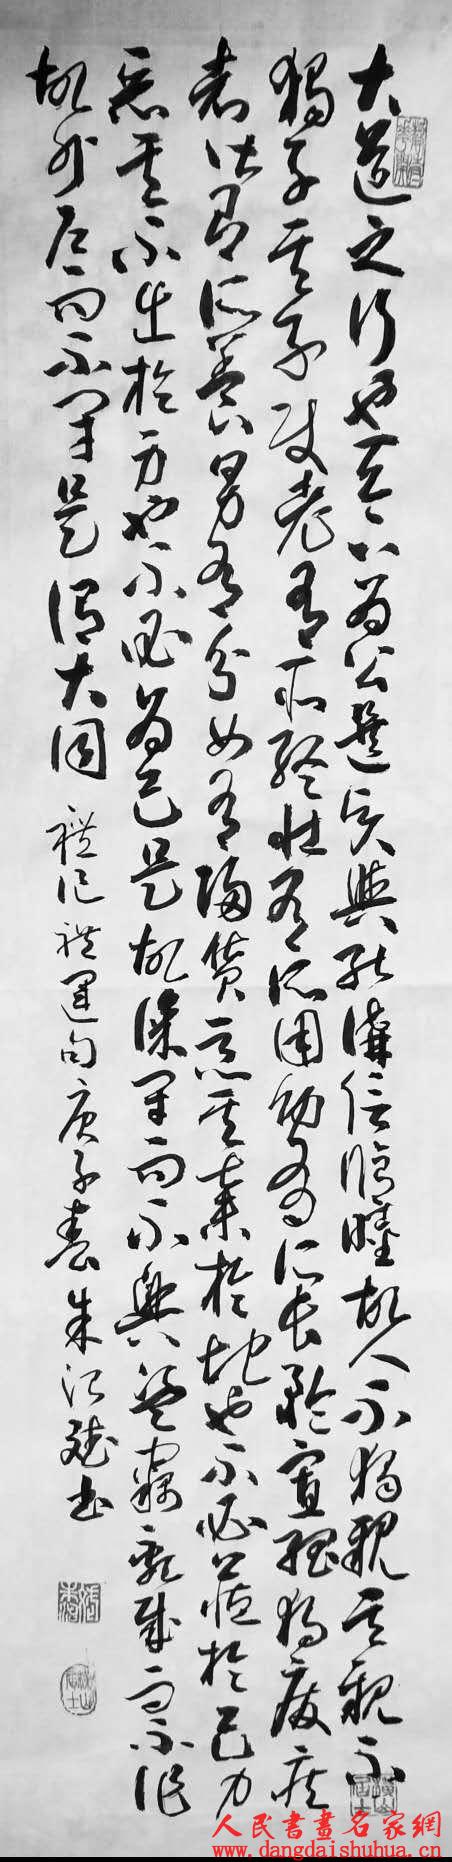 大道之行也天下為公選賢與能講信脩睦故人不獨親其親不
獨子其子使老有所終壯有所用幼有所長矜寡孤獨廢疾
者皆有所養男有分女有歸貨惡其棄於地也不必藏於己力
惡其不出於身也不必為己是故謀閉而不興盜竊亂賊而不作
故外户而不閉是謂大同 禮記禮運句庚子春朱書
人民書畫名家網
www.dangdaishuhua.cn